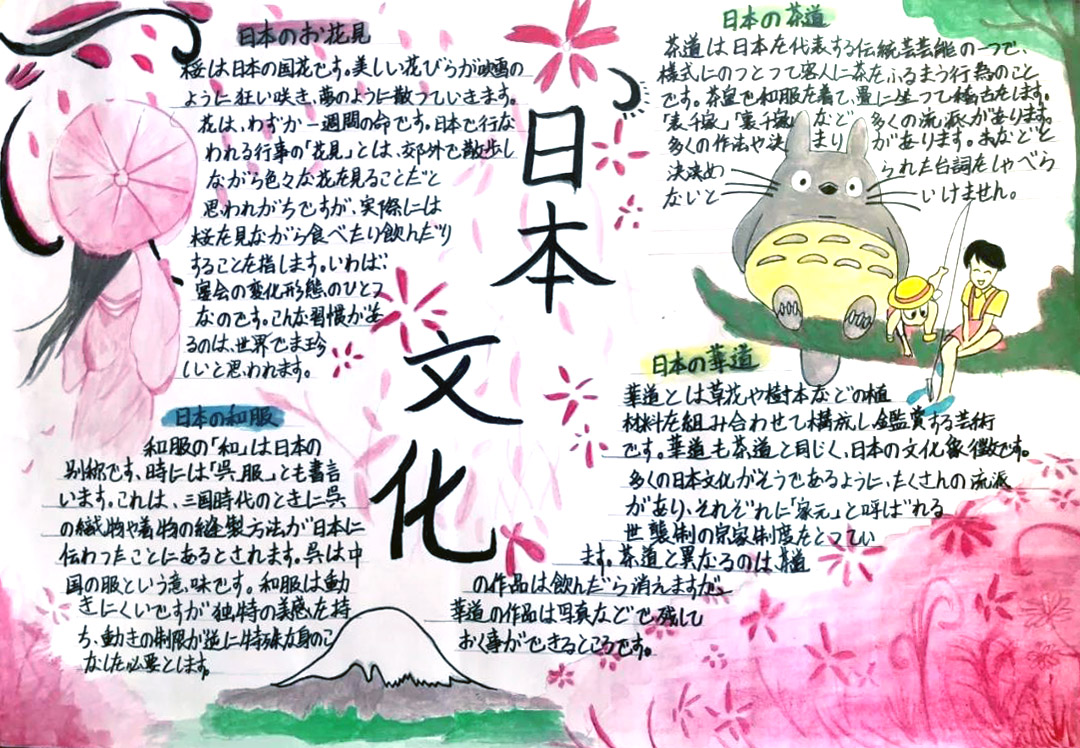 日本のお花見
桜は日本の国花です。美しい花びらが映雪の
ように狂い咲き、夢のように散っていきます。
花は、わずか一週間の命です。日本で行な
われる行事の「花見」とは、郊外で散歩し
ながら色々な花を見ることだと
思われがちですが、実際には
桜を見ながら食べたり飲んだり
することを指します。いわば、
宴会の変化形態のひとつ
なのです。こんな習慣があ
るのは、世界でま珍
しいと思われます。
日本の和服
和服の「和」は日本の
別称です、時には「呉服」とも書言
います。これは、三国時代のときに呉
の織物や着物の縫製方法が日本に
伝わったことにあるとされます。呉は中
国の服という意味です。和服は動
きにくいですが独特の美感を持
ち、動きの制限が逆に特殊な身のこ
なしを必要とします。
日本文化
日本の茶道
茶道は日本を代表する伝統芸芸能の一つで、
様式にのっとって客人に茶をふるまう行為のこと
です。茶室で和服を着て、畳に坐って稽古をします。
「表千家」「裏千家」など、多くの流派があります。
多くの作法や決まりがあります。あなどと
決決められた台詞をしゃべら
ないといけません。
日本の華道
華道とは草花や樹本などの植
材料を組み合わせて構成し、鑑賞する芸術
です。華道も茶道と同じく、日本の文化象徴です。
多くの日本文化がそうであるように、たくさんの流派
があり、それぞれに「家元」と呼ばれる
世襲制の宗家制度をとってい
ます。茶道と異なるのは、茶道
の作品は飲んだら消えますが、
華道の作品は写真などで残して
おく事ができるところです。